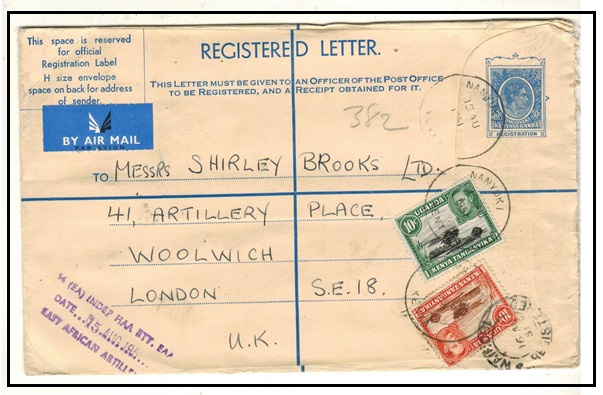 This space is reserved
for official
Registration Label
H size envelope
space on back for address
of sender.
REGISTERED LETTER.
THIS LETTER MUST BE GIVEN TO AN OFFICER OF THE POST OFFICE
TO BE REGISTERED, AND A RECEIPT OBTAINED FOR IT.
382
NANYUKI
REGISTRATION
BY AIR MAIL
PAR AVION
TO MESSRS SHIRLEY BROOKS LTD.
41, ARTILLERY PLACE,
WOOLWICH
LONDON S.E.18.
U.K.
NANYUKI
10c UGANDA
KENYA TANGANYIKA
KENYA TANGANYIKA
(EA) INDEP HAA BTY. EAA
DATE
EAST AFRICAN ARTILLE